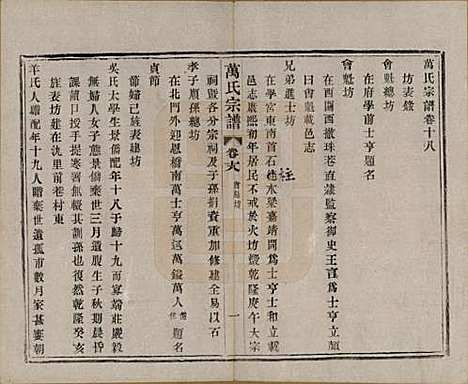 萬氏宗譜卷十八
坊表錄
會魁總坊
在府學前士亨題名
會魁坊
在西關西撒珠巷直隸監察御史王言爲士亨立題
曰會魁載邑志
兄弟進士坊
在學宮東南首石柱木梁嘉靖間爲士亨士和立載
邑志康熙初年居民不戒於火坊燬乾隆庚午大宗
祠暨各分宗祠及子孫重加修建全易以石
孝子順孫總坊
在北門外迎恩橋南萬士亨萬鎰萬人題名
貞節
節婦已旌表建坊
吳氏太學生景僑配年十八于歸十九而寡端莊嚴毅
無婦人女子態景僑棄世三月遺腹生子秋期晨昏
課讀口授手提寒暑無輟其訓孫也復然乾隆癸亥
旌表坊建在氿里前巷村東
羊氏人聰配年十九人聰棄世遺孤甫數月家甚窶朝
萬氏宗譜
卷十八
會魁坊
一
柱